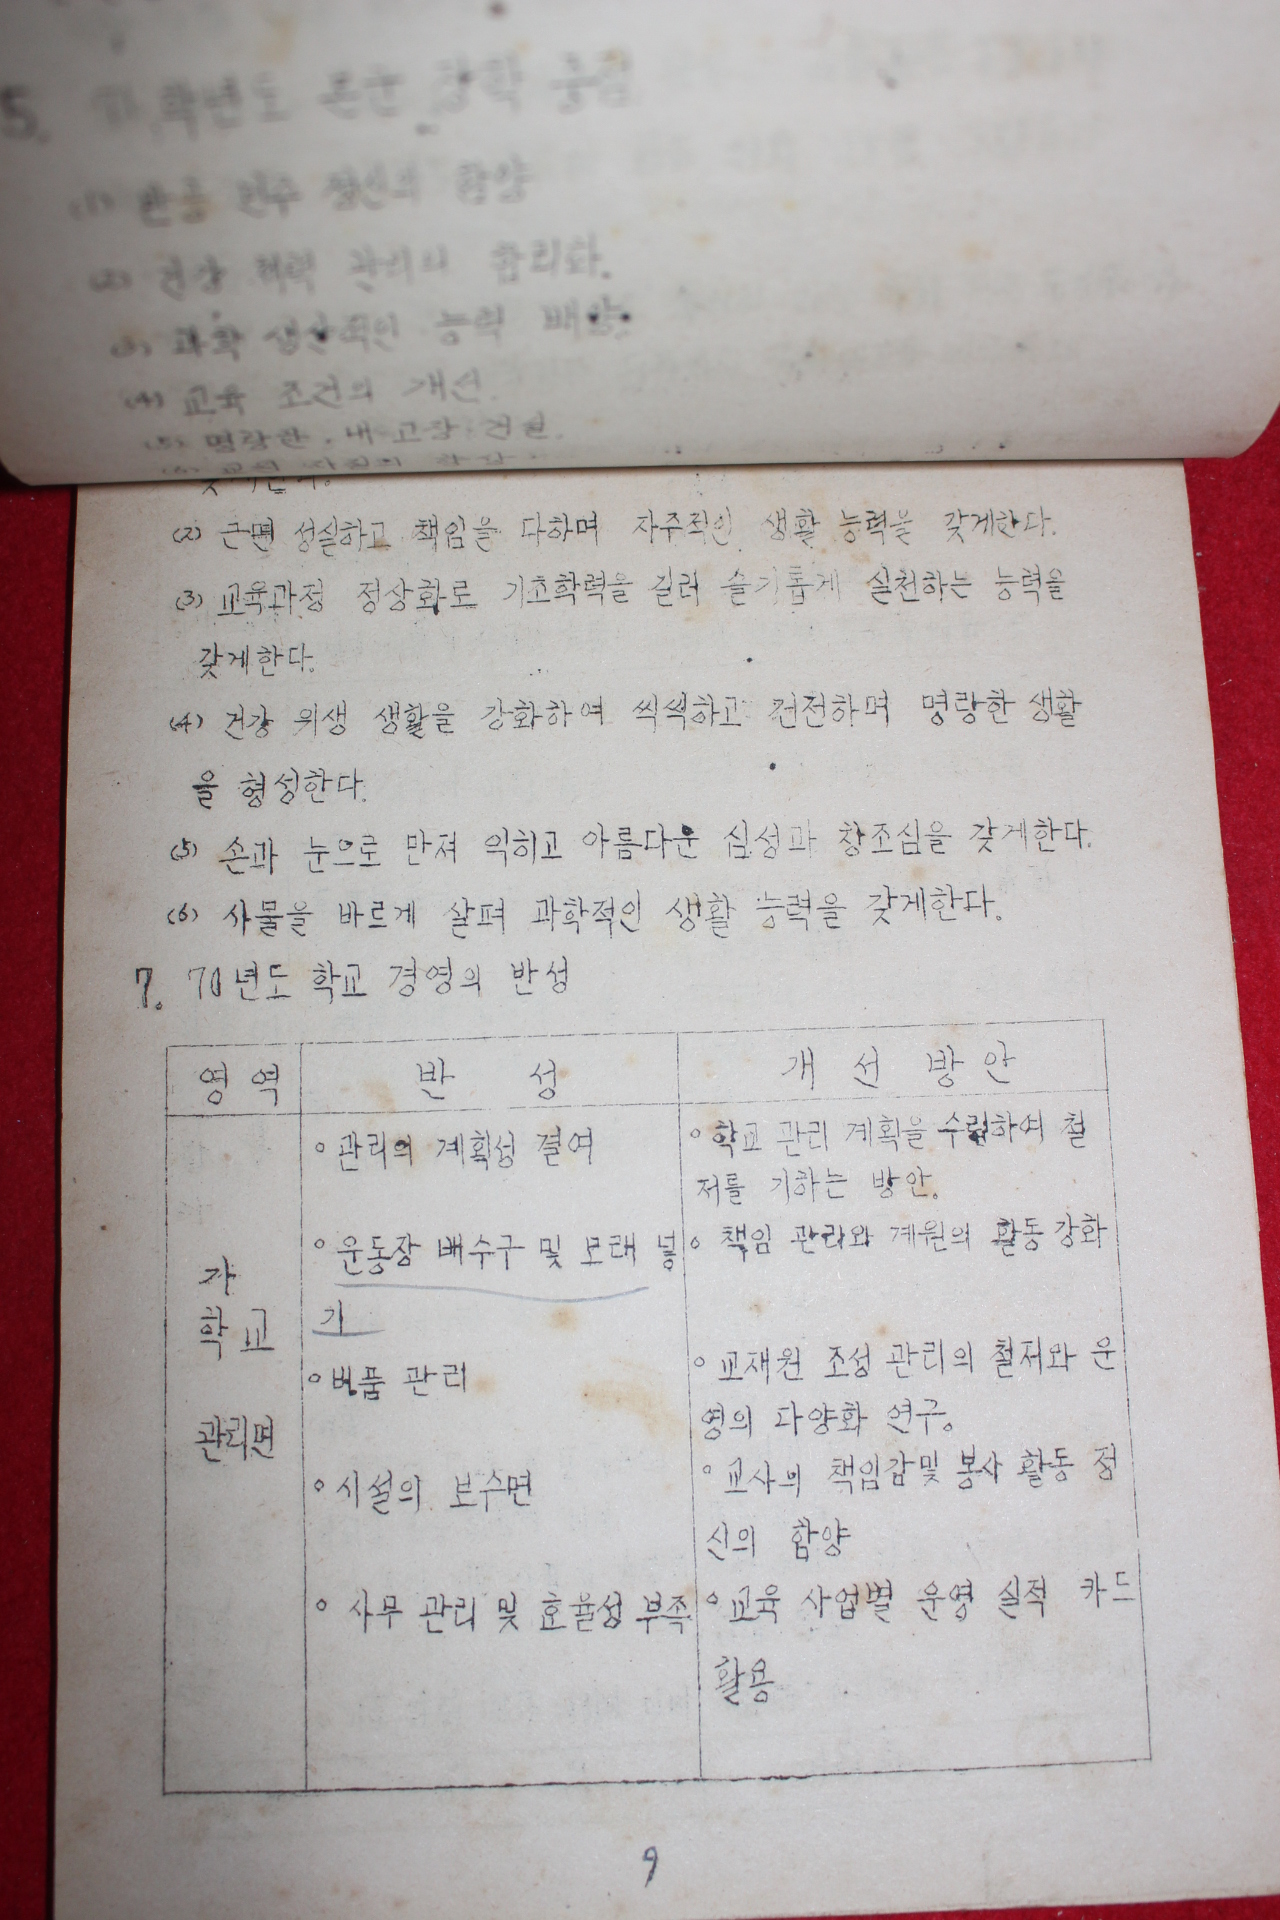 5. 71 학년도 본군 장학 중점
(1) 반공 민주 정신의 함양
(2) 건강 체력 관리의 합리화.
(3) 과학 생산적인 능력 배양.
(4) 교육 조건의 개선.
(5) 명랑한 내 고장 건설.
(2) 근면 성실하고 책임을 다하며 자주적인 생활 능력을 갖게한다.
(3) 교육과정 정상화로 기초학력을 길러 슬기롭게 실천하는 능력을
갖게한다.
(4) 건강 위생 생활을 강화하여 씩씩하고 건전하며 명랑한 생활
을 형성한다.
(5) 손과 눈으로 만져 익히고 아름다운 심성과 창조심을 갖게한다.
(6) 사물을 바르게 살펴 과학적인 생활 능력을 갖게한다.
7. 70년도 학교 경영의 반성
영역 반 성 개 선 방 안
가
학교
관리면
○ 관리의 계획성 결여
○ 운동장 배수구 및 모래 넣
기
○ 비품 관리
○ 시설의 보수면
○ 사무 관리 및 효율성 부족
○ 학교 관리 계획을 수립하여 철
저를 기하는 방안.
○ 책임 관리와 계원의 활동 강화
○ 교재원 조성 관리의 철저와 운
영의 다양화 연구.
○ 교사의 책임감및 봉사 활동 정
신의 함양
○ 교육 사업별 운영 실적 카드
활용
9